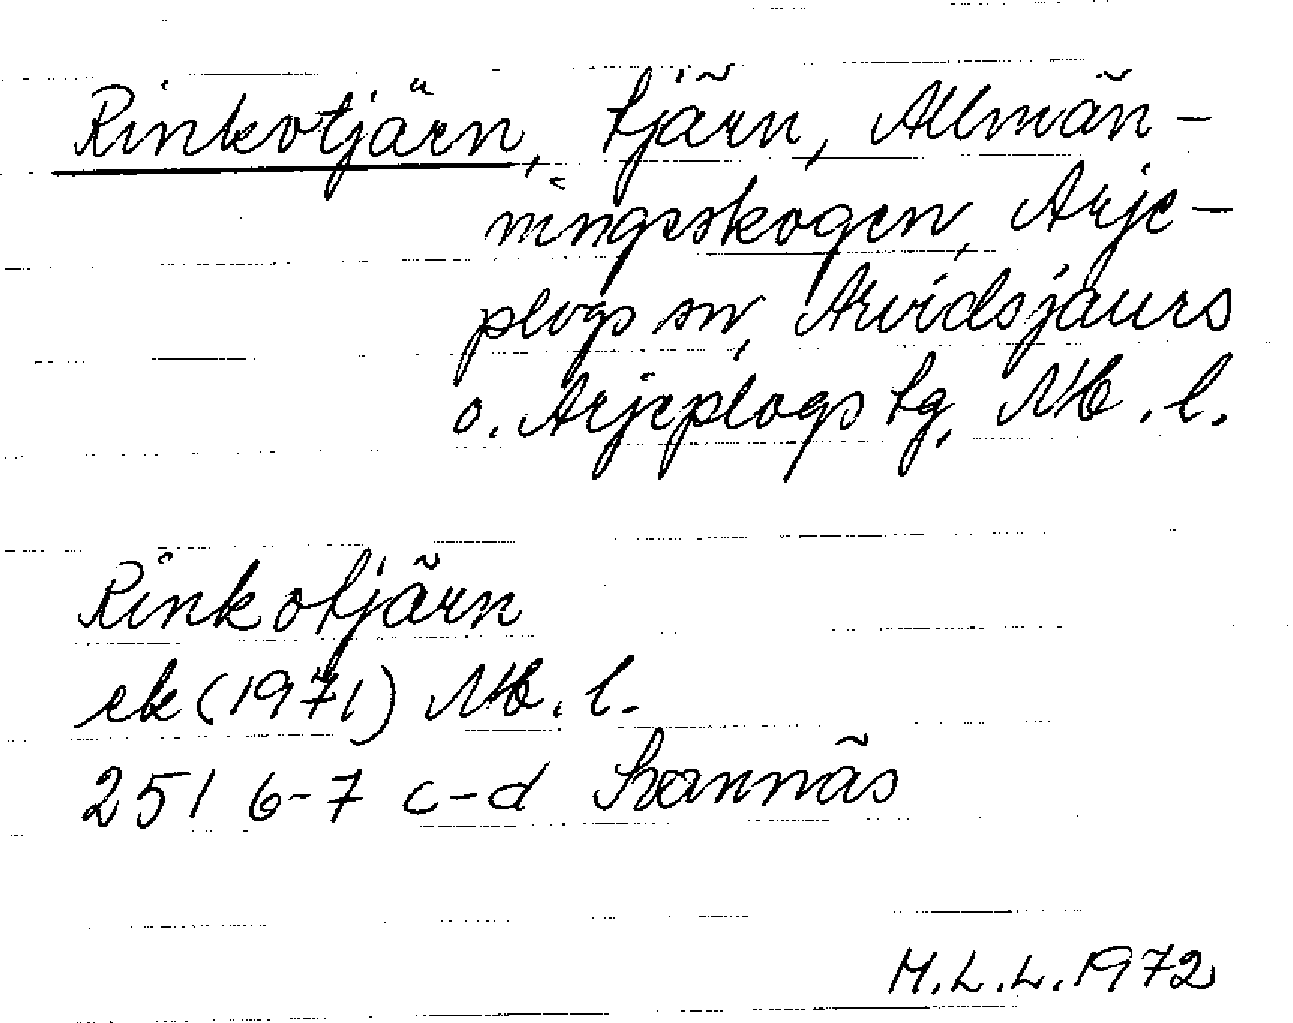 Rinkotjärn, tjärn, Allmän-
ningsskogen, Arje-
plogs sn, Arvidsjaurs
o. Arjeplogs tg, Nb. l.
Rinkotjärn
ek (1971) Nb. l.
251 6-7 c-d Lrannäs
M.L.L. 1972